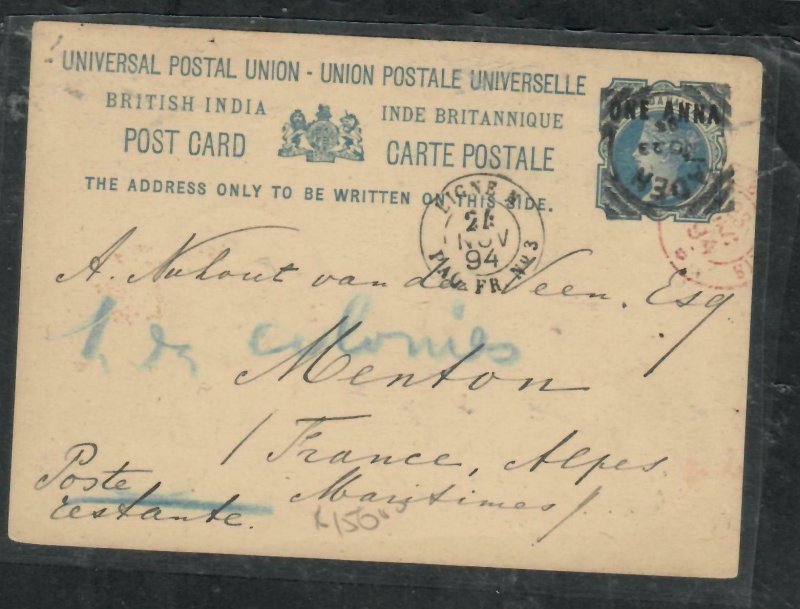 UNIVERSAL POSTAL UNION - UNION POSTALE UNIVERSELLE
BRITISH INDIA INDE BRITANNIQUE
POST CARD CARTE POSTALE
THE ADDRESS ONLY TO BE WRITTEN ON THIS SIDE.
ONE ANNA
ADEN
NO 23
LIGNE N
21
NOV
94
PAQ. FR. No 3
A. Nuhout van der Veen, Esq
colonies
Menton
/ France, Alpes
Maritimes /
Poste
restante.